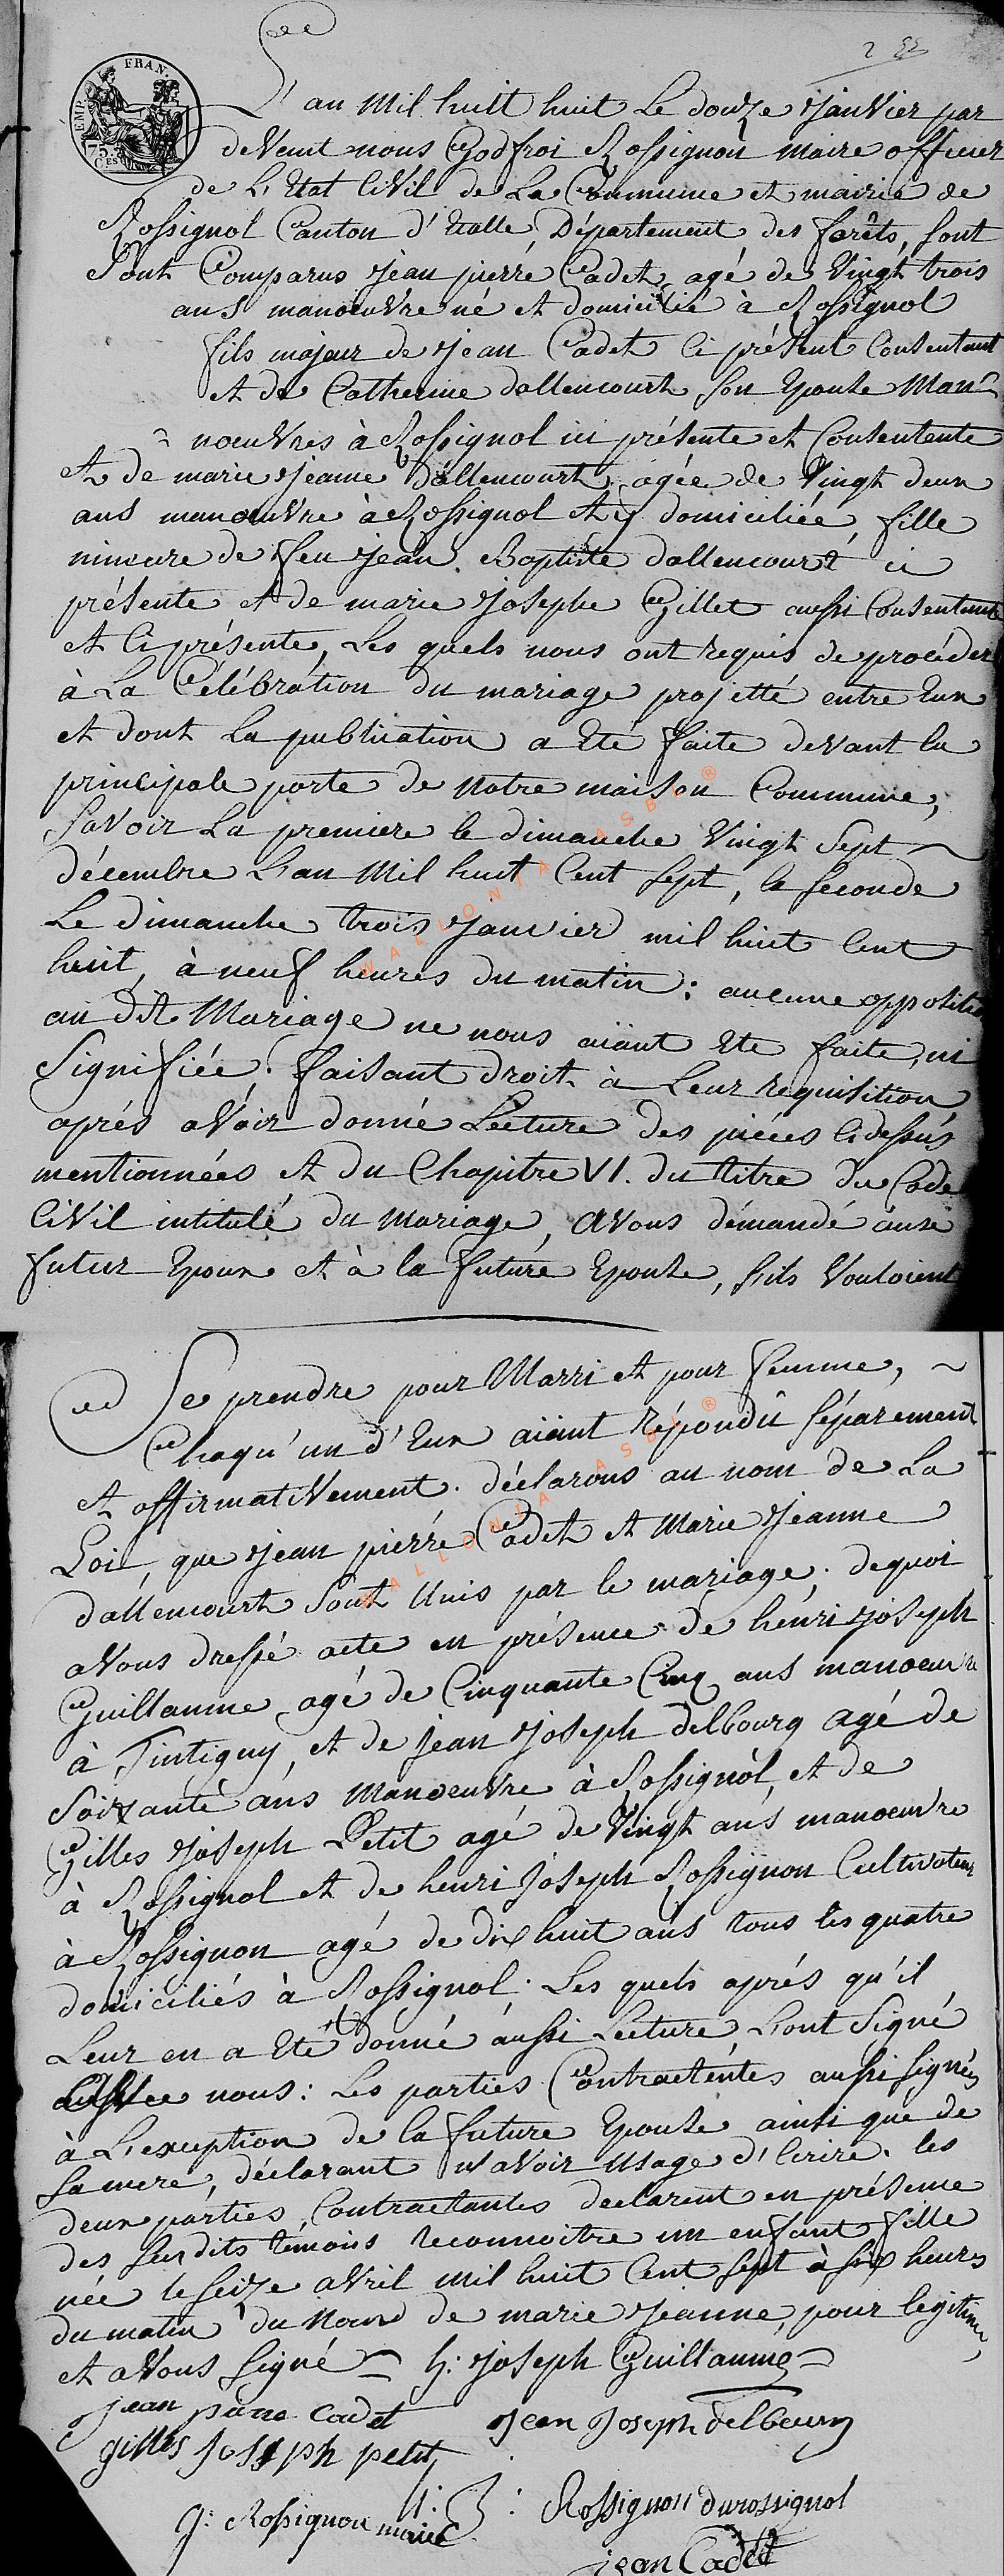 2
EMP. FRAN.
75 C.ES
L'an Mil huit huit Le douze Janvier par
deVent nous Godfroi Rossignon maire officier
de L'Etat CiVil de La Commune et mairie de
Rossignol Canton d'Etalle, Département des forêts, sont
Sont Comparus Jean pierre Cadet agé de Vingt trois
ans manoeuvre né et domicilié à Rossignol
fils majeur de Jean Cadet Ci présent Consentant
et de Catherine dallencourt son Epouse Man
noeuvres à Rossignol ici présente et Consentente
Et de marie Jeanne dallencourt agée de Vingt deux
ans manoeuvre à Rossignol et y domiciliée, fille
mineure de feu Jean Baptiste dallencourt ici
présente et de marie Josephe Gillet aussi Consentente
et Ci présente, Les quels nous ont requis de procéder
à La Célébration du mariage projetté entre Eux
et dont La publication a Eté faite deVant la
principale porte de Notre maison Commune,
SaVoir La premiere le dimanche Vingt Sept
décembre L'an Mil huit Cent sept, la seconde
Le dimanche trois Janvier mil huit Cent
huit, à neuf heures du matin : aucune oppositio
au dit Mariage ne nous aiant Ete faite, ni
Signifiée, faisant droit à Leur requisition
aprés aVoir donné Lecture des piéces Cidessus
mentionnées et du Chapitre VI. du titre du Code
CiVil intitulé du Mariage, aVons démandé aux
futur Epoux et à la future Epouse, s'ils Vouloient
Se prendre pour Marri et pour femme,
Chaqu'un d'Eux aiant répondû séparement
et affirmatiVement. déclarons au nom de La
Loi, que Jean pierre Cadet et Marie Jeanne
dallencourt Sont Unis par le mariage, dequoi
aVons dressé acte en présence de henri Joseph
Guillaume agé de Cinquante Cinq ans manoeuvre
à Tintigny, et de Jean Joseph delbourg agé de
Soixante ans Manoeuvre à Rossignol, et de
Gilles Joseph Petit agé de Vingt ans manoeuvre
à Rossignol et de henri Joseph Rossignon Cultivateur
à Rossignon agé de dix huit ans tous les quatre
domiciliés à Rossignol. Les quels aprés qu'il
Leur en a Eté donné aussi Lecture L'ont Signé
nous : Les parties Contractentes aussi signées
à L'exception de la future Epouse ainsi que de
Sa mere, déclarant n'aVoir Usage d'Ecrire. les
deux parties Contractantes declarent en présence
des susdits témoins reconnoitre un enfant fille
née le seize aVril mil huit Cent sept à six heures
du matin du Nom de marie Jeanne, pour legitime
et aVons signé H: Joseph Guillaume
jean piere cadet
Jean Joseph delbourg
gilles Joseph petit
H: J: Rossignon durossignol
G: Rossignon maire
jean Cadet
WALLONIA ASBL ®
WALLONIA ASBL ®